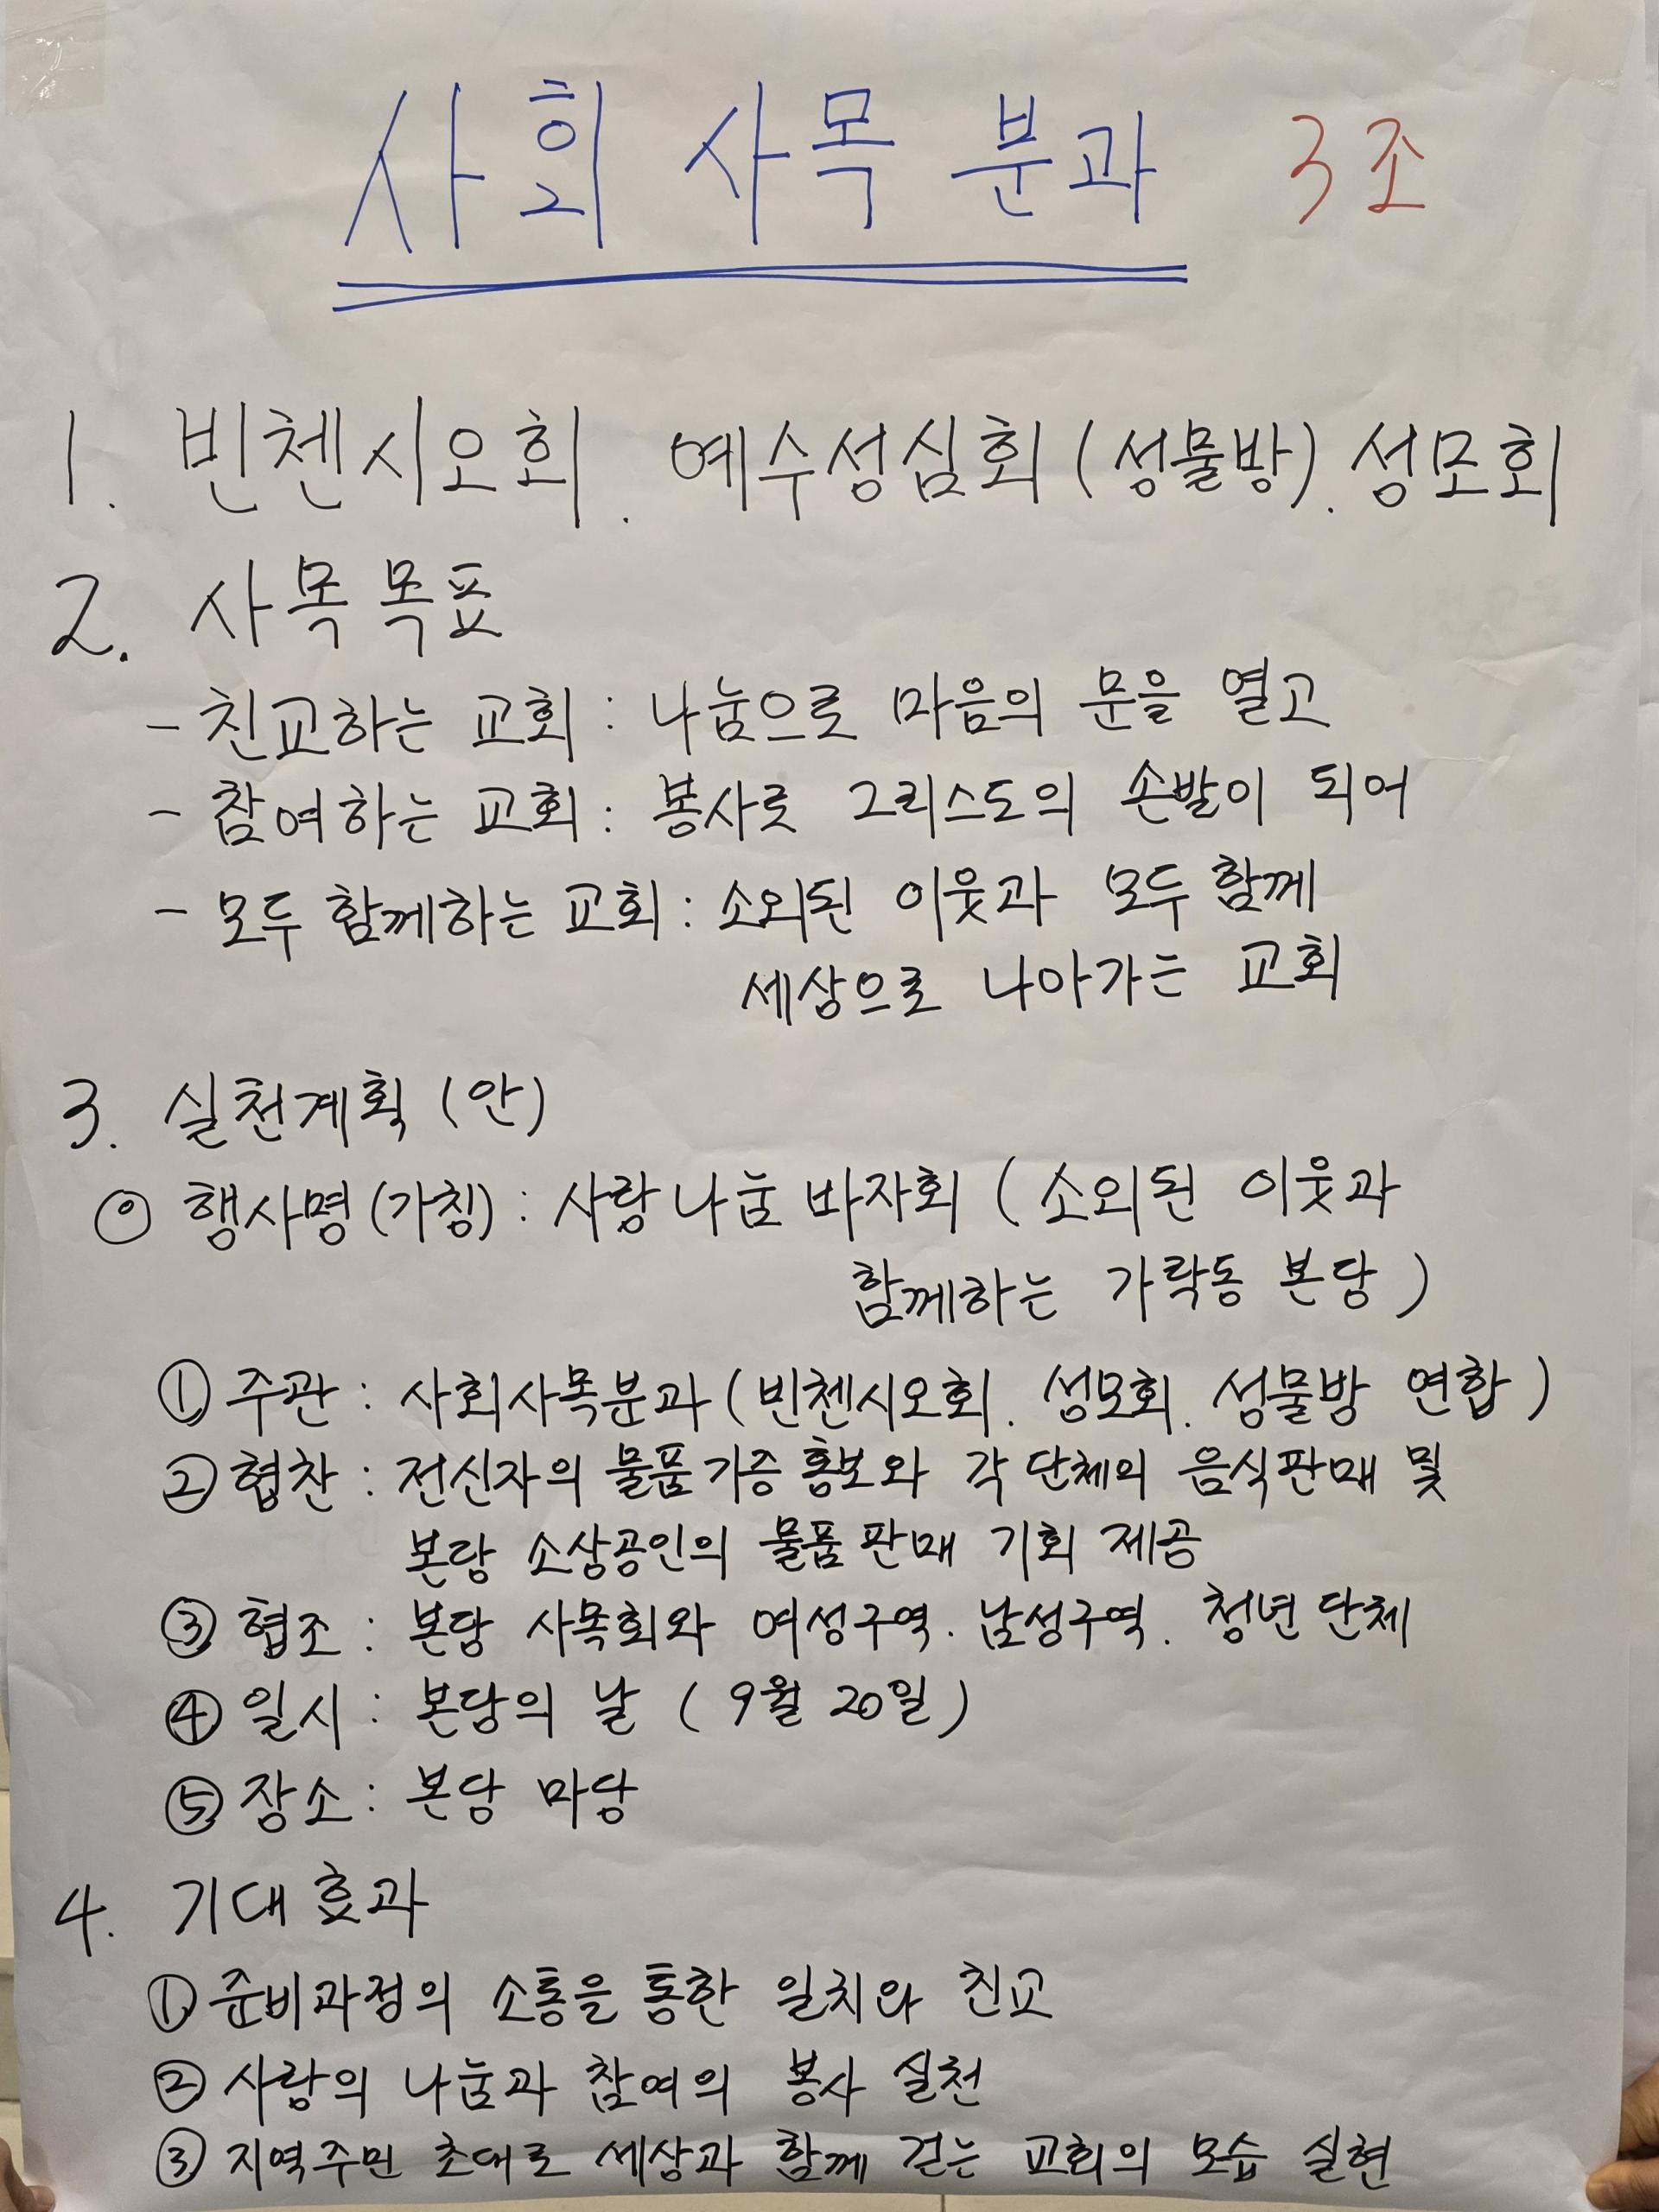 사회 사목 분과 3조
1. 빈첸시오회. 예수성심회(성물방). 성모회
2. 사목 목표
- 친교하는 교회 : 나눔으로 마음의 문을 열고
- 참여하는 교회 : 봉사로 그리스도의 손발이 되어
- 모두 함께하는 교회 : 소외된 이웃과 모두 함께
세상으로 나아가는 교회
3. 실천계획 (안)
◎ 행사명(가칭) : 사랑나눔 바자회 ( 소외된 이웃과
함께하는 가락동 본당 )
① 주관 : 사회사목분과 (빈첸시오회. 성모회. 성물방 연합 )
② 협찬 : 전신자의 물품기증 홍보와 각 단체의 음식판매 및
본당 소상공인의 물품판매 기회 제공
③ 협조 : 본당 사목회와 여성구역. 남성구역. 청년 단체
④ 일시 : 본당의 날 ( 9월 20일 )
⑤ 장소 : 본당 마당
4. 기대효과
① 준비과정의 소통을 통한 일치와 친교
② 사랑의 나눔과 참여의 봉사 실천
③ 지역주민 초대로 세상과 함께 걷는 교회의 모습 실현